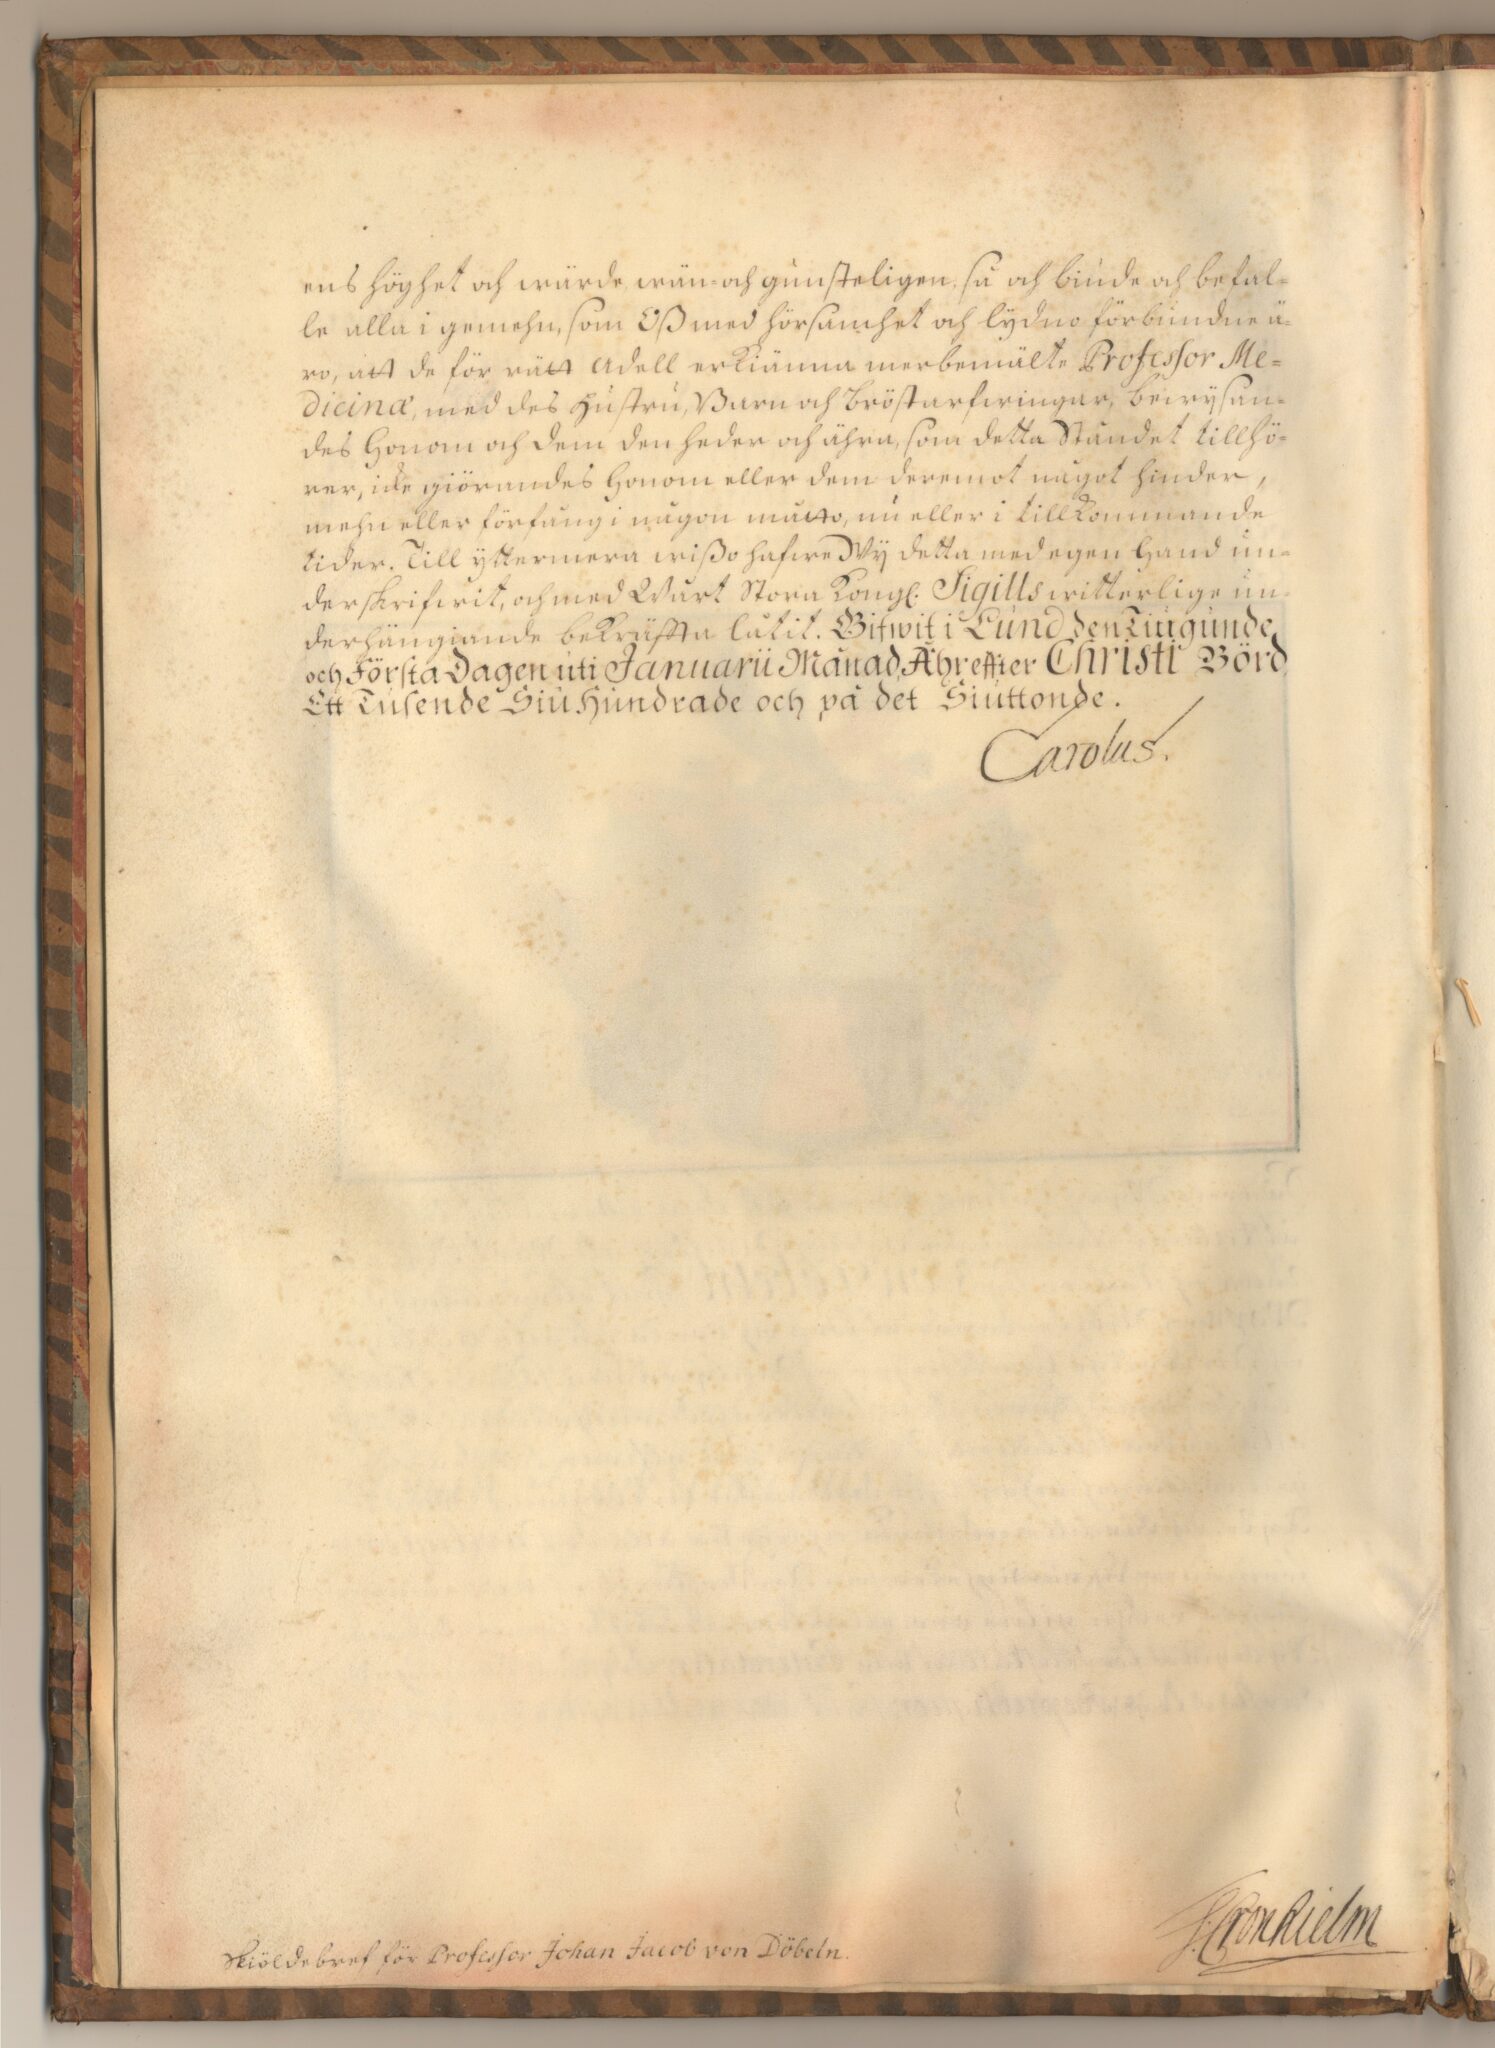 ens höghet och wärde, wän- och gunsteligen, så och biude och befal-
le alla i gemehn, som Oß med hörsamhet och lydno förbundne ä-
ro, att de för rätt Adell erkiänna merbemälte Professor Me-
dicinæ, med des Hustru, Barn och bröstarfwingar, bewysan-
des Honom och dem den heder och ähra, som detta Ståndet tillhö-
rer, icke giörandes Honom eller dem deremot något hinder,
mehn eller förfång i någon måtto, nu eller i tillkommande
tider. Till yttermera wißo hafwe Wy detta med egen Hand un-
derskrifwit, och med Wårt Stora Kongl. Sigills witterlige un-
derhängiande bekräffta låtit. Gifwit i Lund den Tiugunde
och Första Dagen uti Januarii Månad, Åhr effter Christi Börd
Ett Tusende Siu Hundrade och på det Siuttonde.
Carolus.
Skiöldebref för Professor Johan Jacob von Döbeln.
Cronhielm